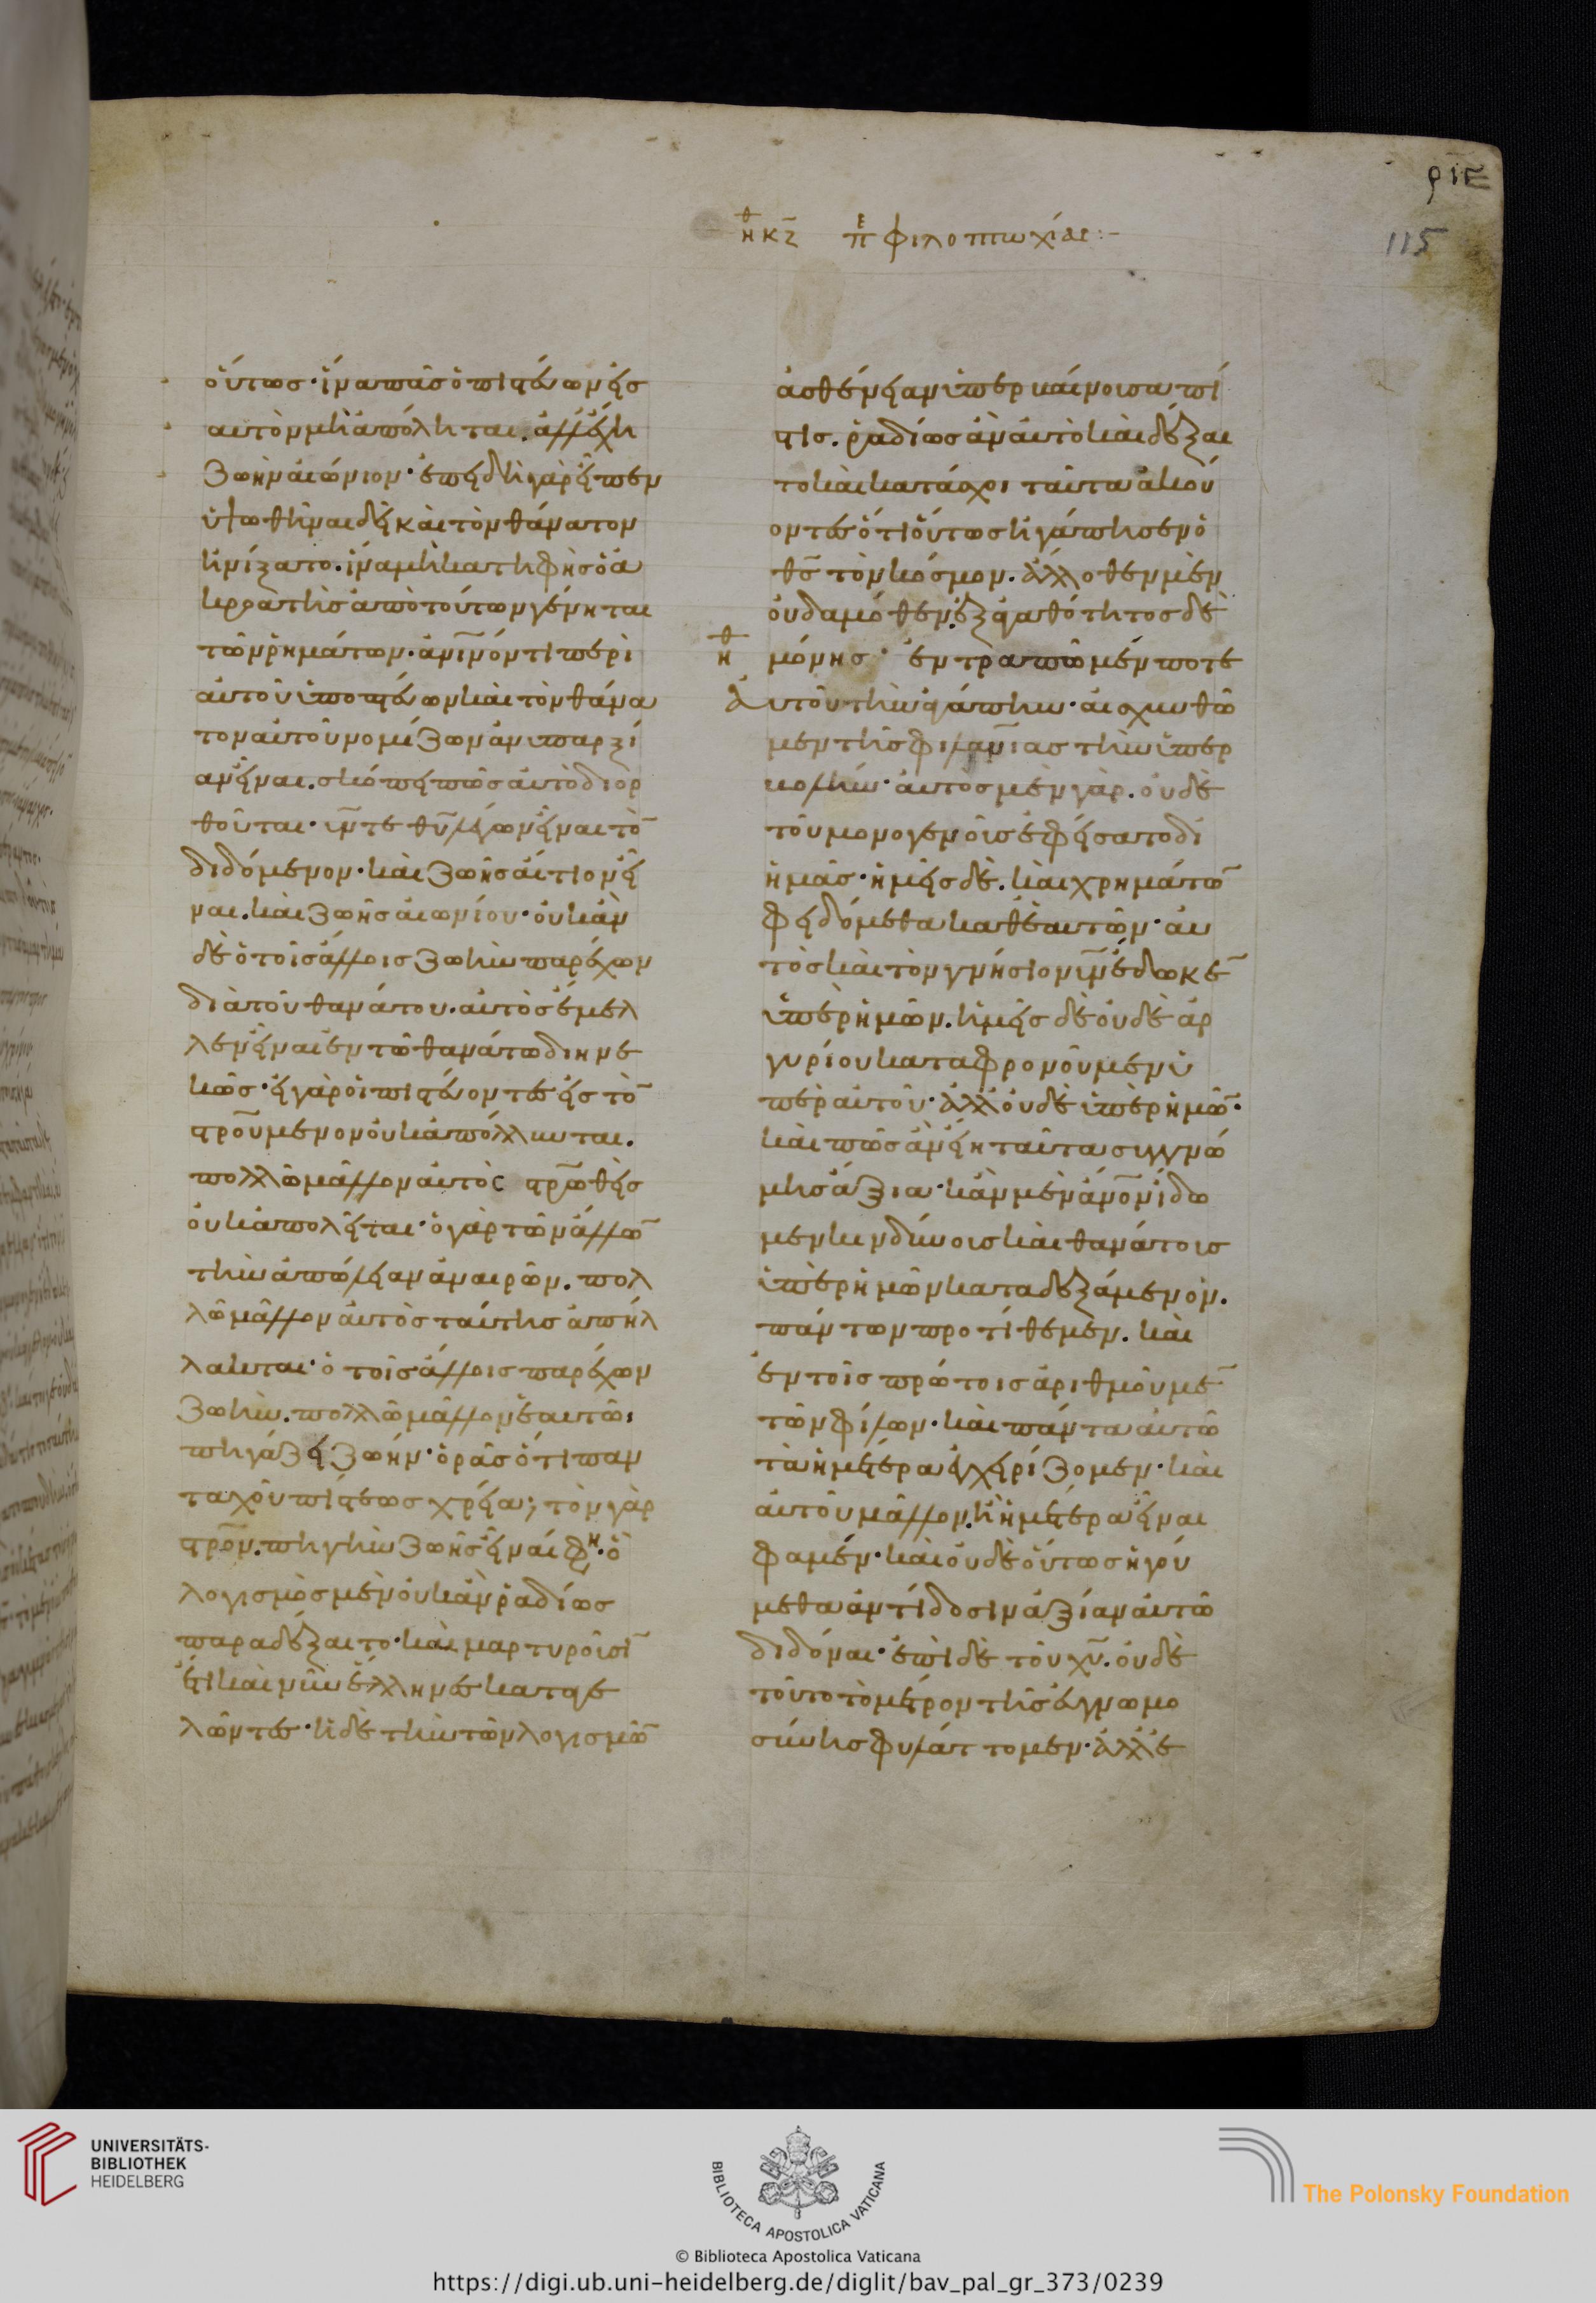 ριε
115
ηθ κζ πε φιλοπτωχίας:-
οὕτως· ἵνα πᾶς ὁ πιστεύων εἰς
αυτὸν μὴ ἀπόληται. ἀλλ' ἔχη
ζωὴν αἰώνιον· ἐπειδὴ γὰρ εἶπεν
ὑψωθῆναι δεῖ καὶ τὸν θάνατον
ἠνίξατο. ἵνα μὴ κατηφὴς ὁ ἀ
κροατὴς ἀπὸ τούτων γένηται
τῶν ρημάτων. ἀνϊνόν τι περὶ
αυτοῦ ὑποπτεύων καὶ τὸν θάνα
τον αυτοῦ νομίζων ἀνυπαρξί
αν εἶναι. σκόπει πῶς αυτὸ διορ
θοῦται· υν τε θυ λέγων εἶναι τὸ
διδόμενον· καὶ ζωῆς αἴτιον εἶ
ναι. καὶ ζωῆς αἰωνίου· οὐκ ἂν
δὲ ὁ τοῖς ἄλλοις ζωὴν παρέχων
διὰ τοῦ θανάτου. αυτὸς ἔμελ
λεν εἶναι ἐν τῶ θανάτω διηνε
κῶς· εἰ γὰρ οἱ πιστεύοντες εἰς τὸ
στρουμενον οὐκ ἀπόλλυνται.
πολλῶ μᾶλλον αυτὸς στρωθεὶς
οὐκ ἀπολεῖται· ὁ γὰρ τῶν ἄλλω
τὴν ἀπώλειαν ἀναιρῶν. πολ
λῶ μᾶλλον αυτὸς ταύτης ἀπήλ
λακται· ὁ τοῖς ἄλλοις παρέχων
ζωὴν. πολλῶ μᾶλλον ἑαυτῶι
πηγάζει ζωήν· ὁρᾶς ὅτι παν
ταχοῦ πίστεως χρεία; τὸν γὰρ
στρον. πηγὴν ζωῆς εἶναί φη· ὁ
λογισμὸς μὲν οὐκ ἂν ραδίως
παραδέξαιτο· καὶ μαρτυροῦσι
ἔτι καὶ νῦν ἕλληνες καταγε
λῶντες· ἡ δὲ τὴν τῶν λογισμῶ
ἀσθένειαν ὑπερβαίνουσα πί
στις. ραδίως ἂν αυτὸ καὶ δέξαι
το καὶ κατάσχοι ταῦτα ἀκού
οντες ὅτι οὕτως ἠγάπησεν ὁ
θς τὸν κόσμον. ἄλλοθεν μὲν
οὐδαμόθεν. ἐξ ἀγαθότητος δὲ
ηθ μόνης· ἐντραπῶμέν ποτε
Αυτοῦ τὴν ἀγάπην· αἰσχυνθῶ
μεν τῆς φιλανιας τὴν ὑπερ
βολήν· αυτὸς μὲν γὰρ. οὐδὲ
τοῦ μονογενοῦς ἐφείσατο δι
ἡμᾶς· ἡμεῖς δὲ. καὶ χρημάτω
φειδόμεθα καθ' ἑαυτῶν· αυ
τὸς καὶ τὸν γνήσιον υν ἔδωκε
ὑπὲρ ἡμῶν. ἡμεῖς δὲ οὐδὲ ἀρ
γυρίου καταφρονοῦμεν ὑ
πὲρ αυτοῦ· ἀλλ' οὐδὲ ὑπὲρ ἡμῶ·
καὶ πῶς ἂν εἴη ταῦτα συγγνώ
μης ἄξια· κἂν μὲν ἀνον ἴδω
μεν κινδύνοις καὶ θανάτοις
ὑπὲρ ἡμῶν καταδεξάμενον.
πάντων προτίθεμεν. καὶ
ἐν τοῖς πρώτοις ἀριθμοῦμε
τῶν φίλων· καὶ πάντα αυτῶ
τὰ ἡμέτερα ἐγχειρίζομεν· καὶ
αυτοῦ μᾶλλον. ἢ ἡμέτερα εἶναι
φαμέν· καὶ οὐδὲ οὕτως ἡγού
μεθα ἀντίδοσιν ἀξίαν αυτῶ
διδόναι· ἐπὶ δὲ τοῦ χυ. οὐδὲ
τοῦτο τὸ μέτρον τῆς εὐγνωμο
σύνης φυλάττομεν· ἀλλ' ἐ
UNIVERSITÄTS-
BIBLIOTHEK
HEIDELBERG
BIBLIOTECA APOSTOLICA VATICANA
The Polonsky Foundation
© Biblioteca Apostolica Vaticana
https://digi.ub.uni-heidelberg.de/diglit/bav_pal_gr_373/0239